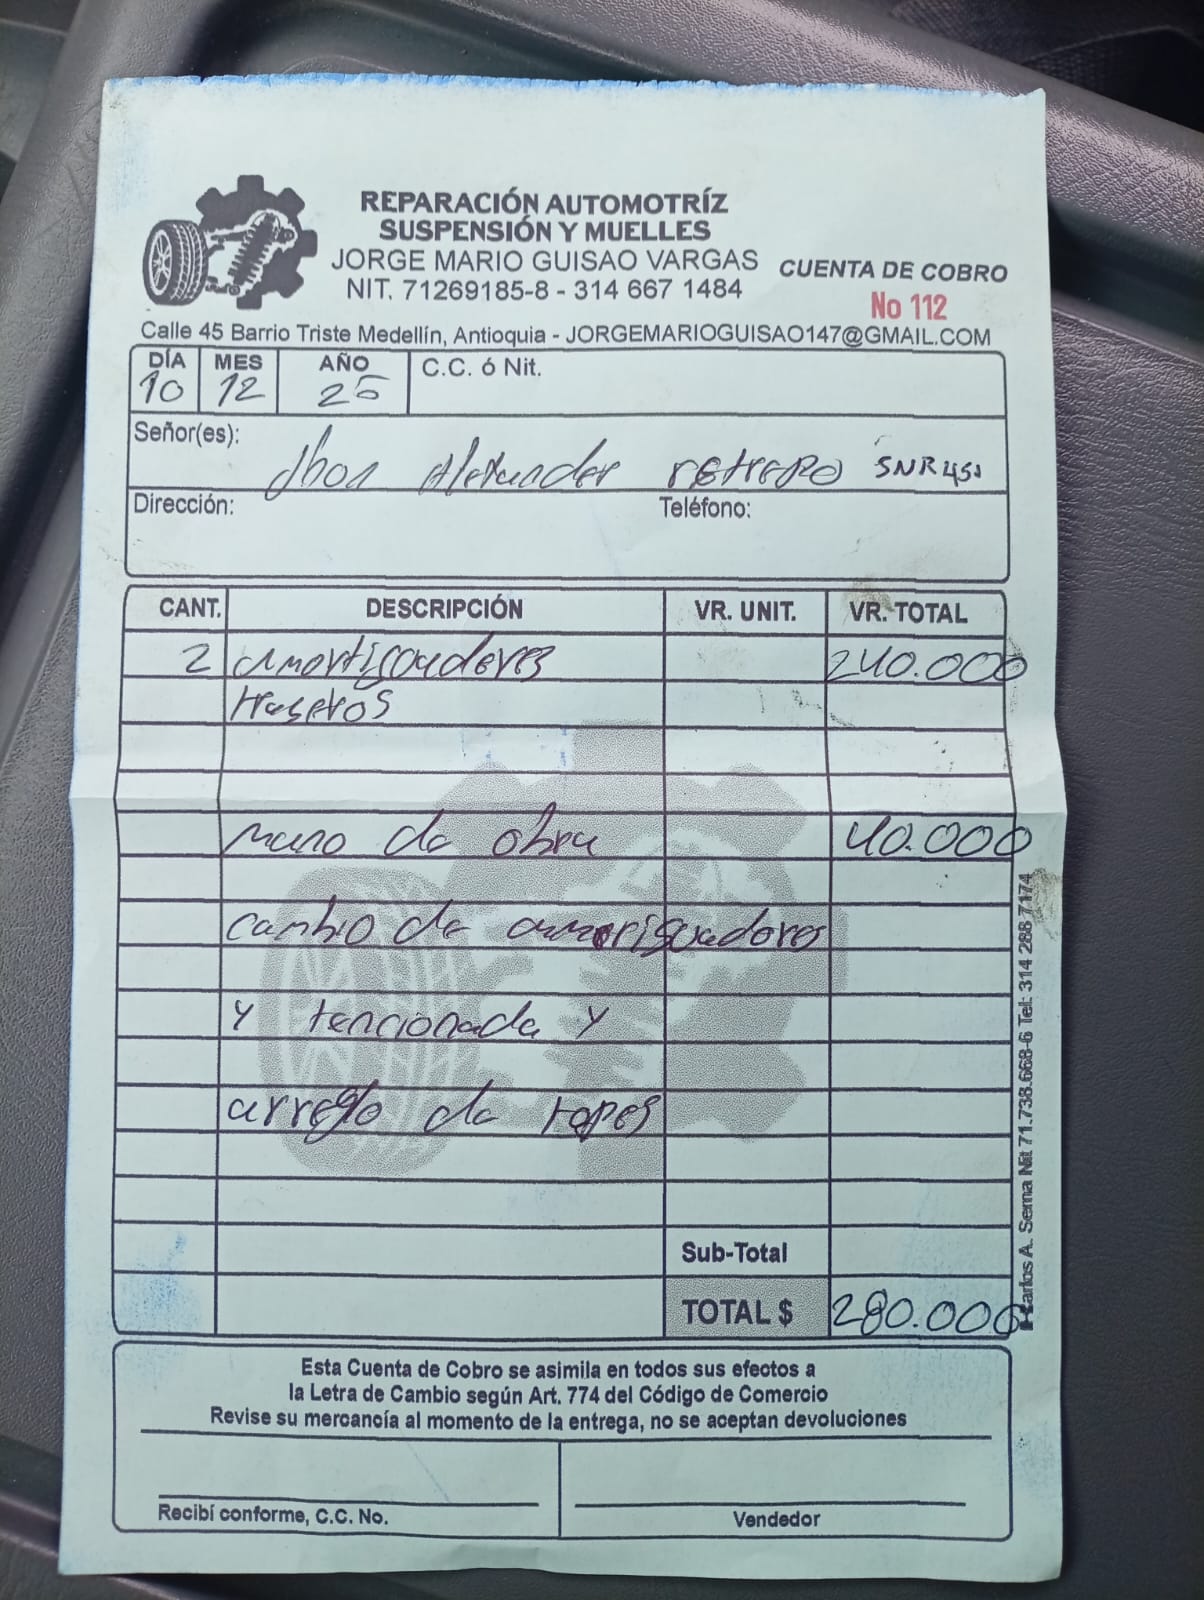 REPARACIÓN AUTOMOTRÍZ
SUSPENSIÓN Y MUELLES
JORGE MARIO GUISAO VARGAS
NIT. 71269185-8 - 314 667 1484
CUENTA DE COBRO
No 112
Calle 45 Barrio Triste Medellín, Antioquia - JORGEMARIOGUISAO147@GMAIL.COM
DÍA MES AÑO C.C. ó Nit.
10 12 25
Señor(es):
Jhon Alexander retrepo SNR451
Dirección: Teléfono:
CANT. DESCRIPCIÓN VR. UNIT. VR. TOTAL
2 amortiguadores 240.000
traseros
mano de obra 40.000
cambio de amoriguadores
y tencionada y
arreglo de topes
Sub-Total
TOTAL $ 280.000
Karlos A. Serna Nit 71.738.668-6 Tel: 314 288 7174
Esta Cuenta de Cobro se asimila en todos sus efectos a
la Letra de Cambio según Art. 774 del Código de Comercio
Revise su mercancía al momento de la entrega, no se aceptan devoluciones
Recibí conforme, C.C. No. Vendedor